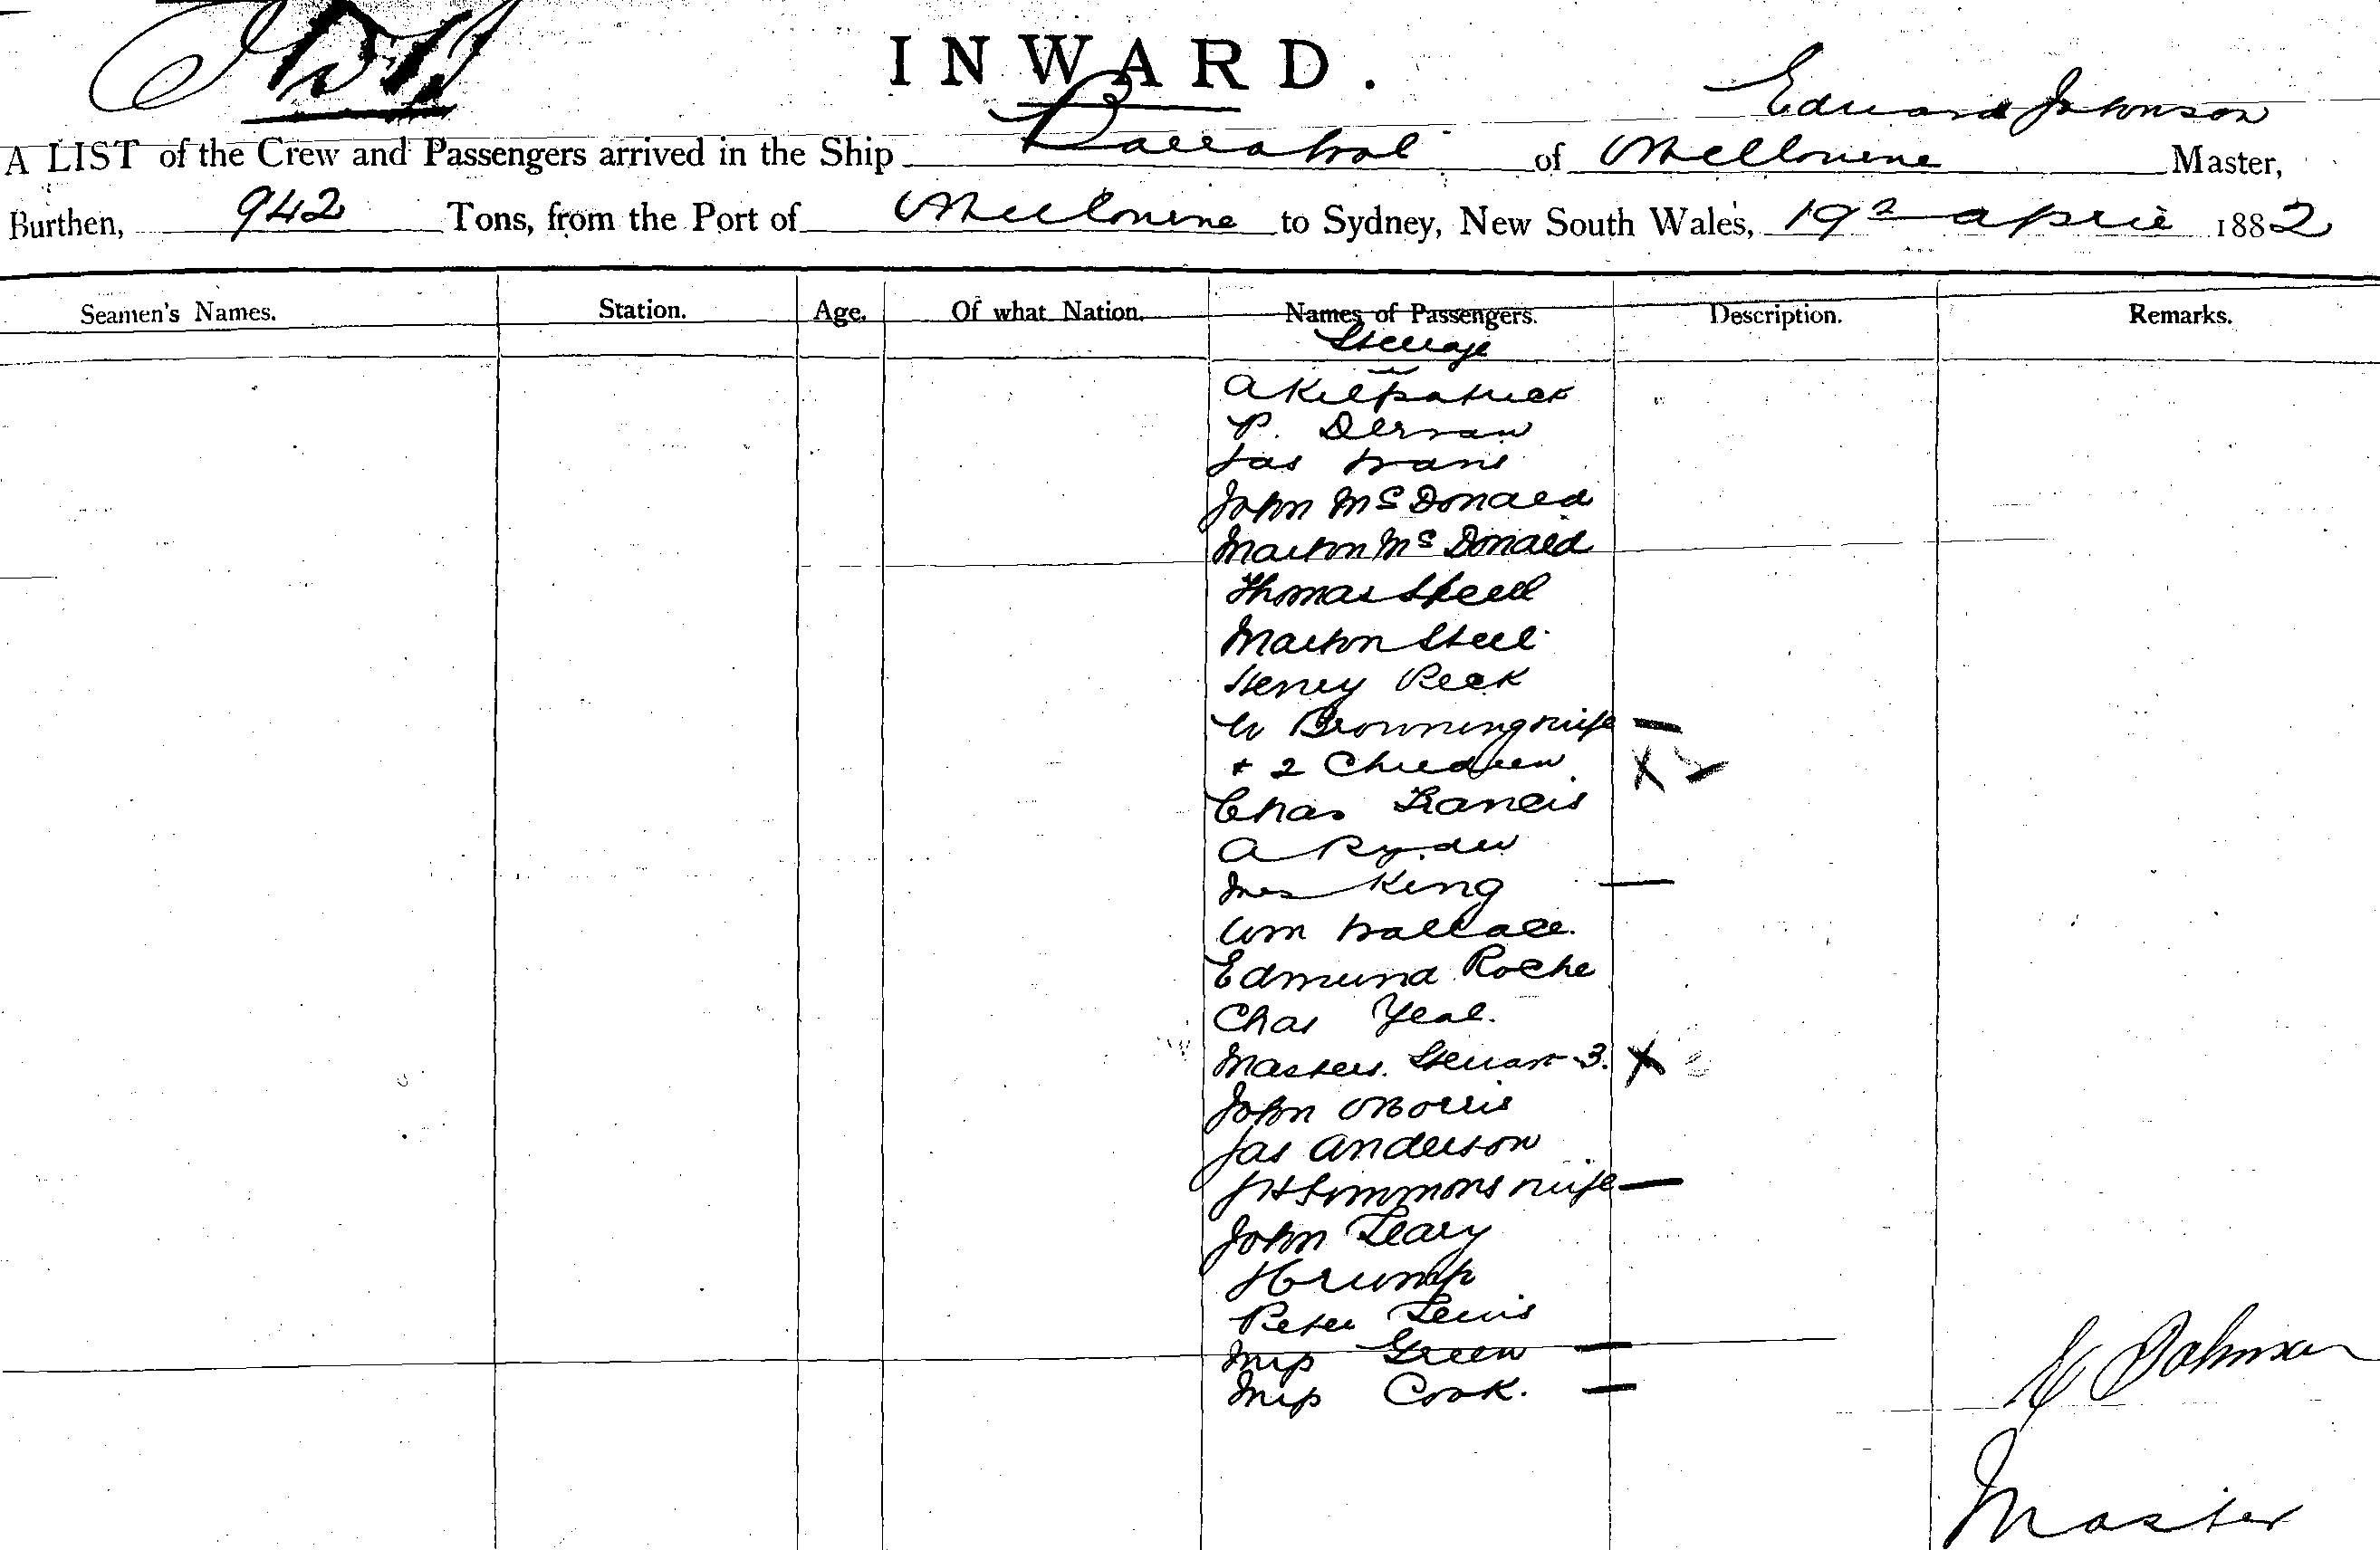 INWARD.
Edward Johnson
A LIST of the Crew and Passengers arrived in the Ship Barrabool of Melbourne Master,
Burthen, 942 Tons, from the Port of Melbourne to Sydney, New South Wales, 19 April 1882
Seamen's Names. Station. Age. Of what Nation. Names of Passengers. Description. Remarks.
Steerage
A Kilpatrick
P.
Jas
John McDonald
Martin McDonald
Thomas
Martin Steel
Henry Peck
W Browning wife
+ 2 Children
Chas Francis
A Ryder
Mrs King
Wm Wallace
Edmund Roche
Chas
Masters Stewart 3.
John Morris
Jas Anderson
J H Simmons wife
John Leary
Peter Lewis
Miss Green
Miss Cook.
E Johnson
Master